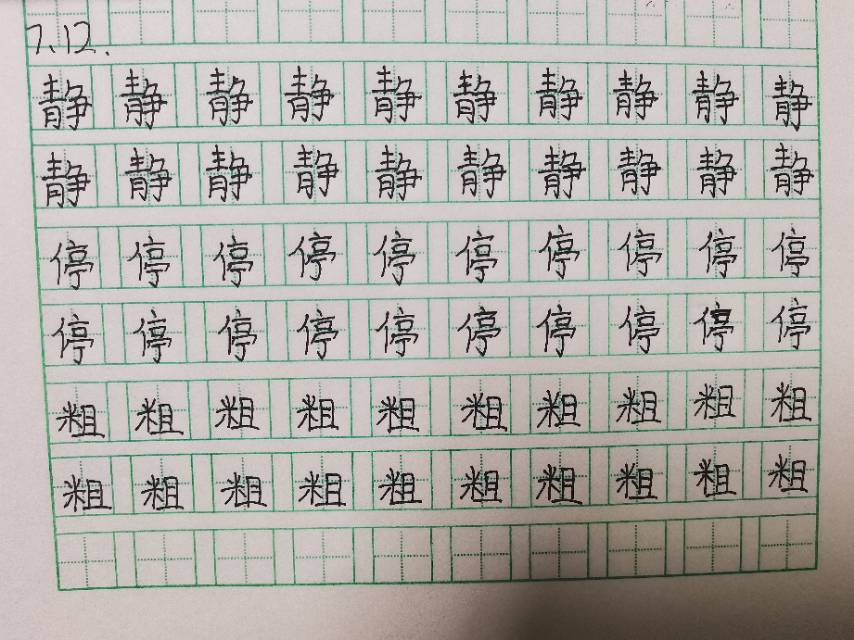 7.12.
静静静静静静静静静静
静静静静静静静静静静
停停停停停停停停停停
停停停停停停停停停停
粗粗粗粗粗粗粗粗粗粗
粗粗粗粗粗粗粗粗粗粗